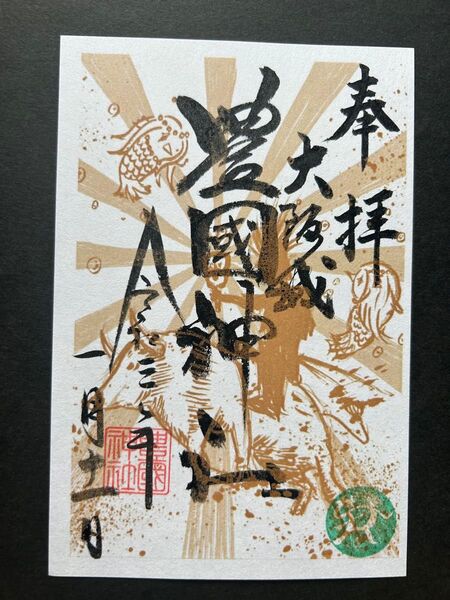 奉拝
大阪城
豊國神社
令和三年
一月十一日
豊國
神社